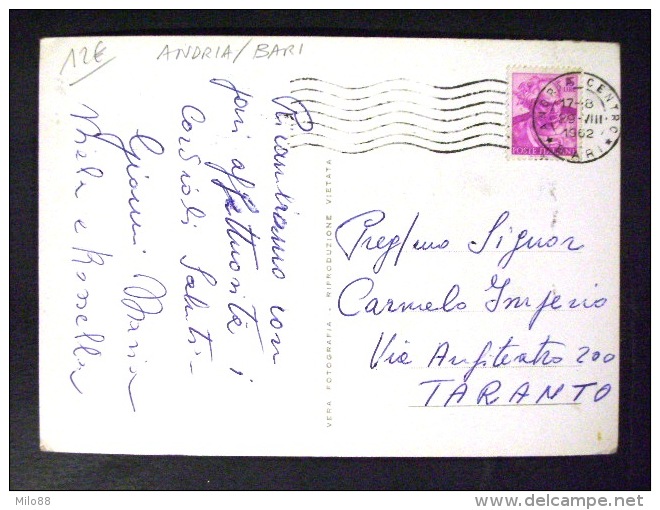 12€
ANDRIA/BARI
Ricambiamo con
pari affettuosità i
Cordiali Saluti
Gianni Maria
e Rossella
VERA FOTOGRAFIA - RIPRODUZIONE VIETATA
ANDRIA CENTRO
17-8
29-VIII
1962
* BARI *
POSTE ITALIANE
Preg/mo Signor
Carmelo Imperio
Via Anfiteatro 200
TARANTO
Milo88
delcampe.net